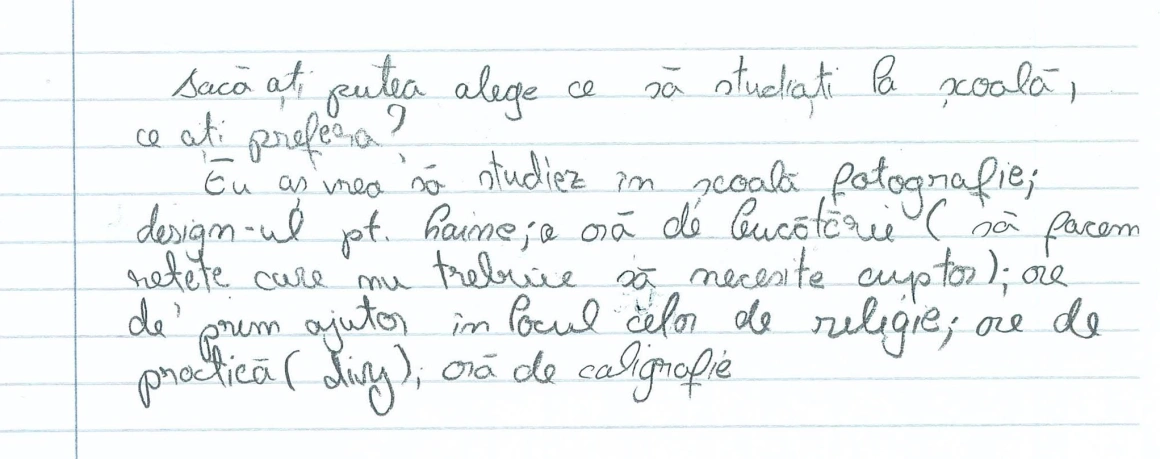 Dacă ați putea alege ce să studiați la școală,
ce ați prefera?
Eu aș vrea să studiez în școală fotografie;
design-ul pt. haine; o oră de bucătărie (să facem
rețete care nu trebuie să necesite cuptor); ore
de prim ajutor în locul celor de religie; ore de
practică (diy); oră de caligrafie